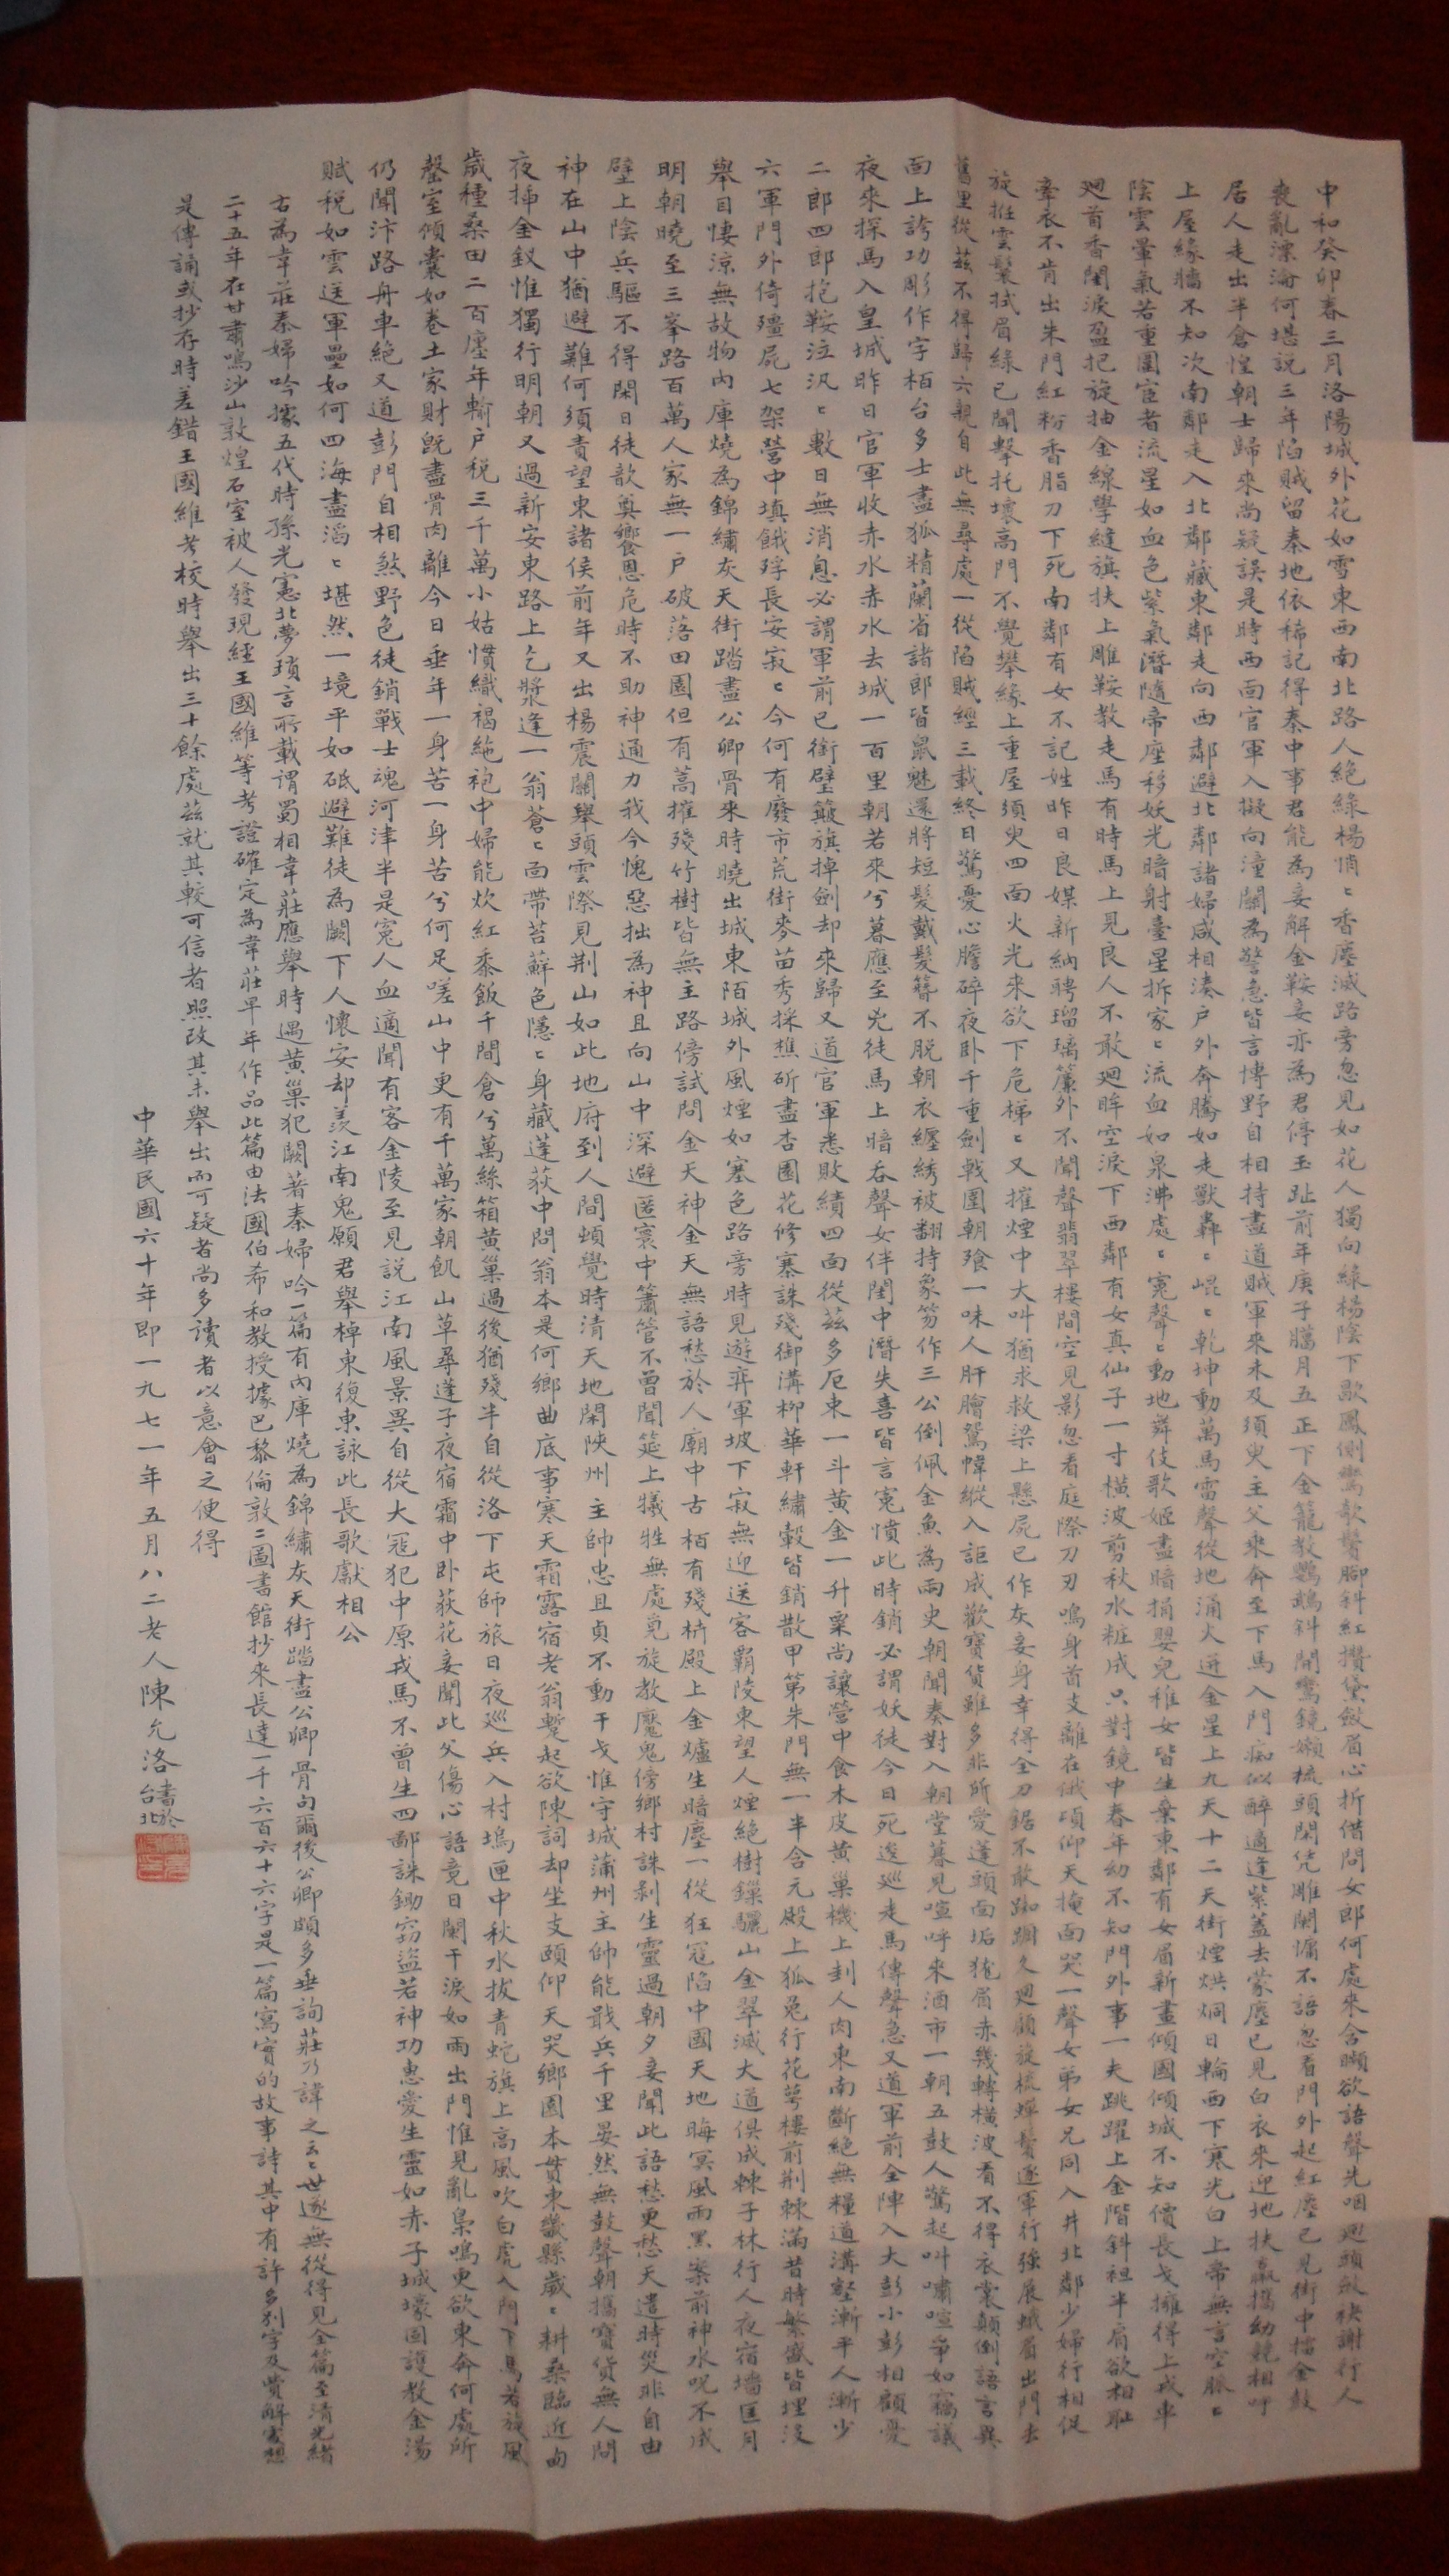 中和癸卯春三月洛陽城外花如雪東西南北路人絕綠楊悄〻香塵滅路旁忽見如花人獨向綠楊陰下歇鳳側鸞欹鬢腳斜紅攢黛斂眉心折借問女郎何處來含嚬欲語聲先咽廻頭斂袂謝行人
喪亂漂淪何堪說三年陷賊留秦地依稀記得秦中事君能為妾解金鞍妾亦為君停玉趾前年庚子臘月五正下金籠教鸚鵡斜開鸞鏡嬾梳頭閑凭雕闌慵不語忽看門外起紅塵已見街中擂金鼓
居人走出半倉惶朝士歸來尚疑誤是時西面官軍入擬向潼關為警急皆言博野自相持盡道賊軍來未及須臾主父乘奔至下馬入門痴似醉適逢紫蓋去蒙塵已見白衣來迎地扶羸攜幼競相呼
上屋緣牆不知次南鄰走入北鄰藏東鄰走向西鄰避北鄰諸婦咸相湊戶外奔騰如走獸轟〻崐〻乾坤動萬馬雷聲從地涌火迸金星上九天十二天街煙烘烔日輪西下寒光白上帝無言空脈〻
陰雲暈氣若重圍宦者流星如血色紫氣潛隨帝座移妖光暗射臺星拆家〻流血如泉沸處〻冤聲〻動地舞伎歌姬盡暗捐嬰兒稚女皆生棄東鄰有女眉新畫傾國傾城不知價長戈擁得上戎車
廻首香閨淚盈把旋抽金線學縫旗扶上雕鞍教走馬有時馬上見良人不敢廻眸空淚下西鄰有女真仙子一寸橫波剪秋水粧成只對鏡中春年幼不知門外事一夫跳躍上金階斜袒半肩欲相恥
牽衣不肯出朱門紅粉香脂刀下死南鄰有女不記姓昨日良媒新納聘瑠璃簾外不聞聲翡翠樓間空見影忽看庭際刀刃鳴身首支離在俄頃仰天掩面哭一聲女弟女兄同入井北鄰少婦行相促
旋拆雲鬟拭眉綠已聞擊托壞高門不覺攀緣上重屋須臾四面火光來欲下危梯〻又摧煙中大叫猶求救梁上懸屍已作灰妾身幸得全刀鋸不敢踟躕久廻顧旋梳蟬鬢逐軍行強展蛾眉出門去
舊里從茲不得歸六親自此無尋處一從陷賊經三載終日驚憂心膽碎夜卧千重劍戟圍朝飡一味人肝膾鴛幃縱入詎成歡寶貨雖多非所愛蓬頭面垢狵眉赤幾轉橫波看不得衣裳顛倒語言異
面上誇功彫作字栢台多士盡狐精蘭省諸郎皆鼠魅還將短髮戴髮簪不脫朝衣纏綉被翻持象笏作三公倒佩金魚為兩史朝聞奏對入朝堂暮見喧呼來酒市一朝五鼓人驚起叫嘯喧爭如竊議
夜來探馬入皇城昨日官軍收赤水赤水去城一百里朝若來兮暮應至兇徒馬上暗吞聲女伴閨中潛失喜皆言冤憤此時銷必謂妖徒今日死逡巡走馬傳聲急又道軍前全陣入大彭小彭相顧憂
二郎四郎抱鞍泣汎〻數日無消息必謂軍前已銜璧簸旗掉劍却來歸又道官軍悉敗績四面從茲多厄束一斗黃金一升粟尚讓營中食木皮黃巢機上刲人肉東南斷絕無糧道溝壑漸平人漸少
六軍門外倚殭屍七架營中填餓殍長安寂〻今何有廢市荒街麥苗秀採樵斫盡杏園花修寨誅殘御溝柳華軒繡轂皆銷散甲第朱門無一半含元殿上狐兔行花萼樓前荆棘滿昔時繁盛皆埋沒
舉目悽涼無故物內庫燒為錦繡灰天街踏盡公卿骨來時曉出城東陌城外風煙如塞色路旁時見遊弈軍坡下寂無迎送客霸陵東望人煙絕樹鏁驪山金翠滅大道俱成棘子林行人夜宿墻匡月
明朝曉至三峯路百萬人家無一戶破落田園但有蒿摧殘竹樹皆無主路傍試問金天神金天無語愁於人廟中古栢有殘枿殿上金爐生暗塵一從狂寇陷中國天地晦冥風雨黑案前神水呪不成
壁上陰兵驅不得閑日徒歆奠饗恩危時不助神通力我今愧惡拙為神且向山中深避匿寰中簫管不曾聞筵上犧牲無處覓旋教魘鬼傍鄉村誅剥生靈過朝夕妾聞此語愁更愁天遣時災非自由
神在山中猶避難何須責望東諸侯前年又出楊震關舉頭雲際見荆山如此地府到人間頓覺時清天地閑陝州主帥忠且貞不動干戈惟守城蒲州主帥能戢兵千里晏然無鼓聲朝攜寶貨無人問
夜插金釵惟獨行明朝又過新安東路上乞漿逢一翁蒼〻面帶苔蘚色隱〻身藏蓬荻中問翁本是何鄉曲底事寒天霜露宿老翁蹔起欲陳詞却坐支頤仰天哭鄉園本貫東畿縣歲〻耕桑臨近甸
歲種桑田二百廛年輸戶稅三千萬小姑慣織褐絁袍中婦能炊紅黍飯千間倉兮萬絲箱黃巢過後猶殘半自從洛下屯師旅日夜巡兵入村塢匣中秋水拔青蛇旗上高風吹白虎入門下馬若旋風
罄室傾囊如卷土家財旣盡骨肉離今日垂年一身苦一身苦兮何足嗟山中更有千萬家朝飢山草尋蓬子夜宿霜中卧荻花妾聞此父傷心語竟日闌干淚如雨出門惟見亂梟鳴更欲東奔何處所
仍聞汴路舟車絕又道彭門自相煞野色徒銷戰士魂河津半是冤人血適聞有客金陵至見說江南風景異自從大寇犯中原戎馬不曾生四鄙誅鋤竊盜若神功惠愛生靈如赤子城壕固護教金湯
賦稅如雲送軍壘如何四海盡滔〻堪然一境平如砥避難徒為闕下人懷安却羨江南鬼願君舉棹東復東詠此長歌獻相公
右為韋莊秦婦吟據五代時孫光憲北夢瑣言所載謂蜀相韋莊應舉時遇黃巢犯闕著秦婦吟一篇有內庫燒為錦繡灰天街踏盡公卿骨句爾後公卿頗多垂詢莊乃諱之云〻世遂無從得見全篇至清光緒
二十五年在甘肅鳴沙山敦煌石室被人發現經王國維等考證確定為韋莊早年作品此篇由法國伯希和教授據巴黎倫敦二圖書館抄來長達一千六百六十六字是一篇寫實的故事詩其中有許多別字及費解處想
是傳誦或抄存時差錯王國維考校時舉出三十餘處茲就其較可信者照改其未舉出而可疑者尚多讀者以意會之便得
中華民國六十年即一九七一年五月八二老人陳允洛書於台北